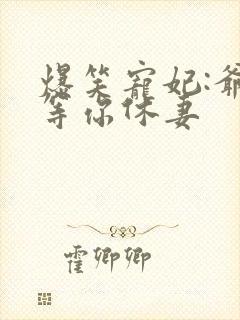 爆笑宠妃:爷
等你休妻
霍卿卿